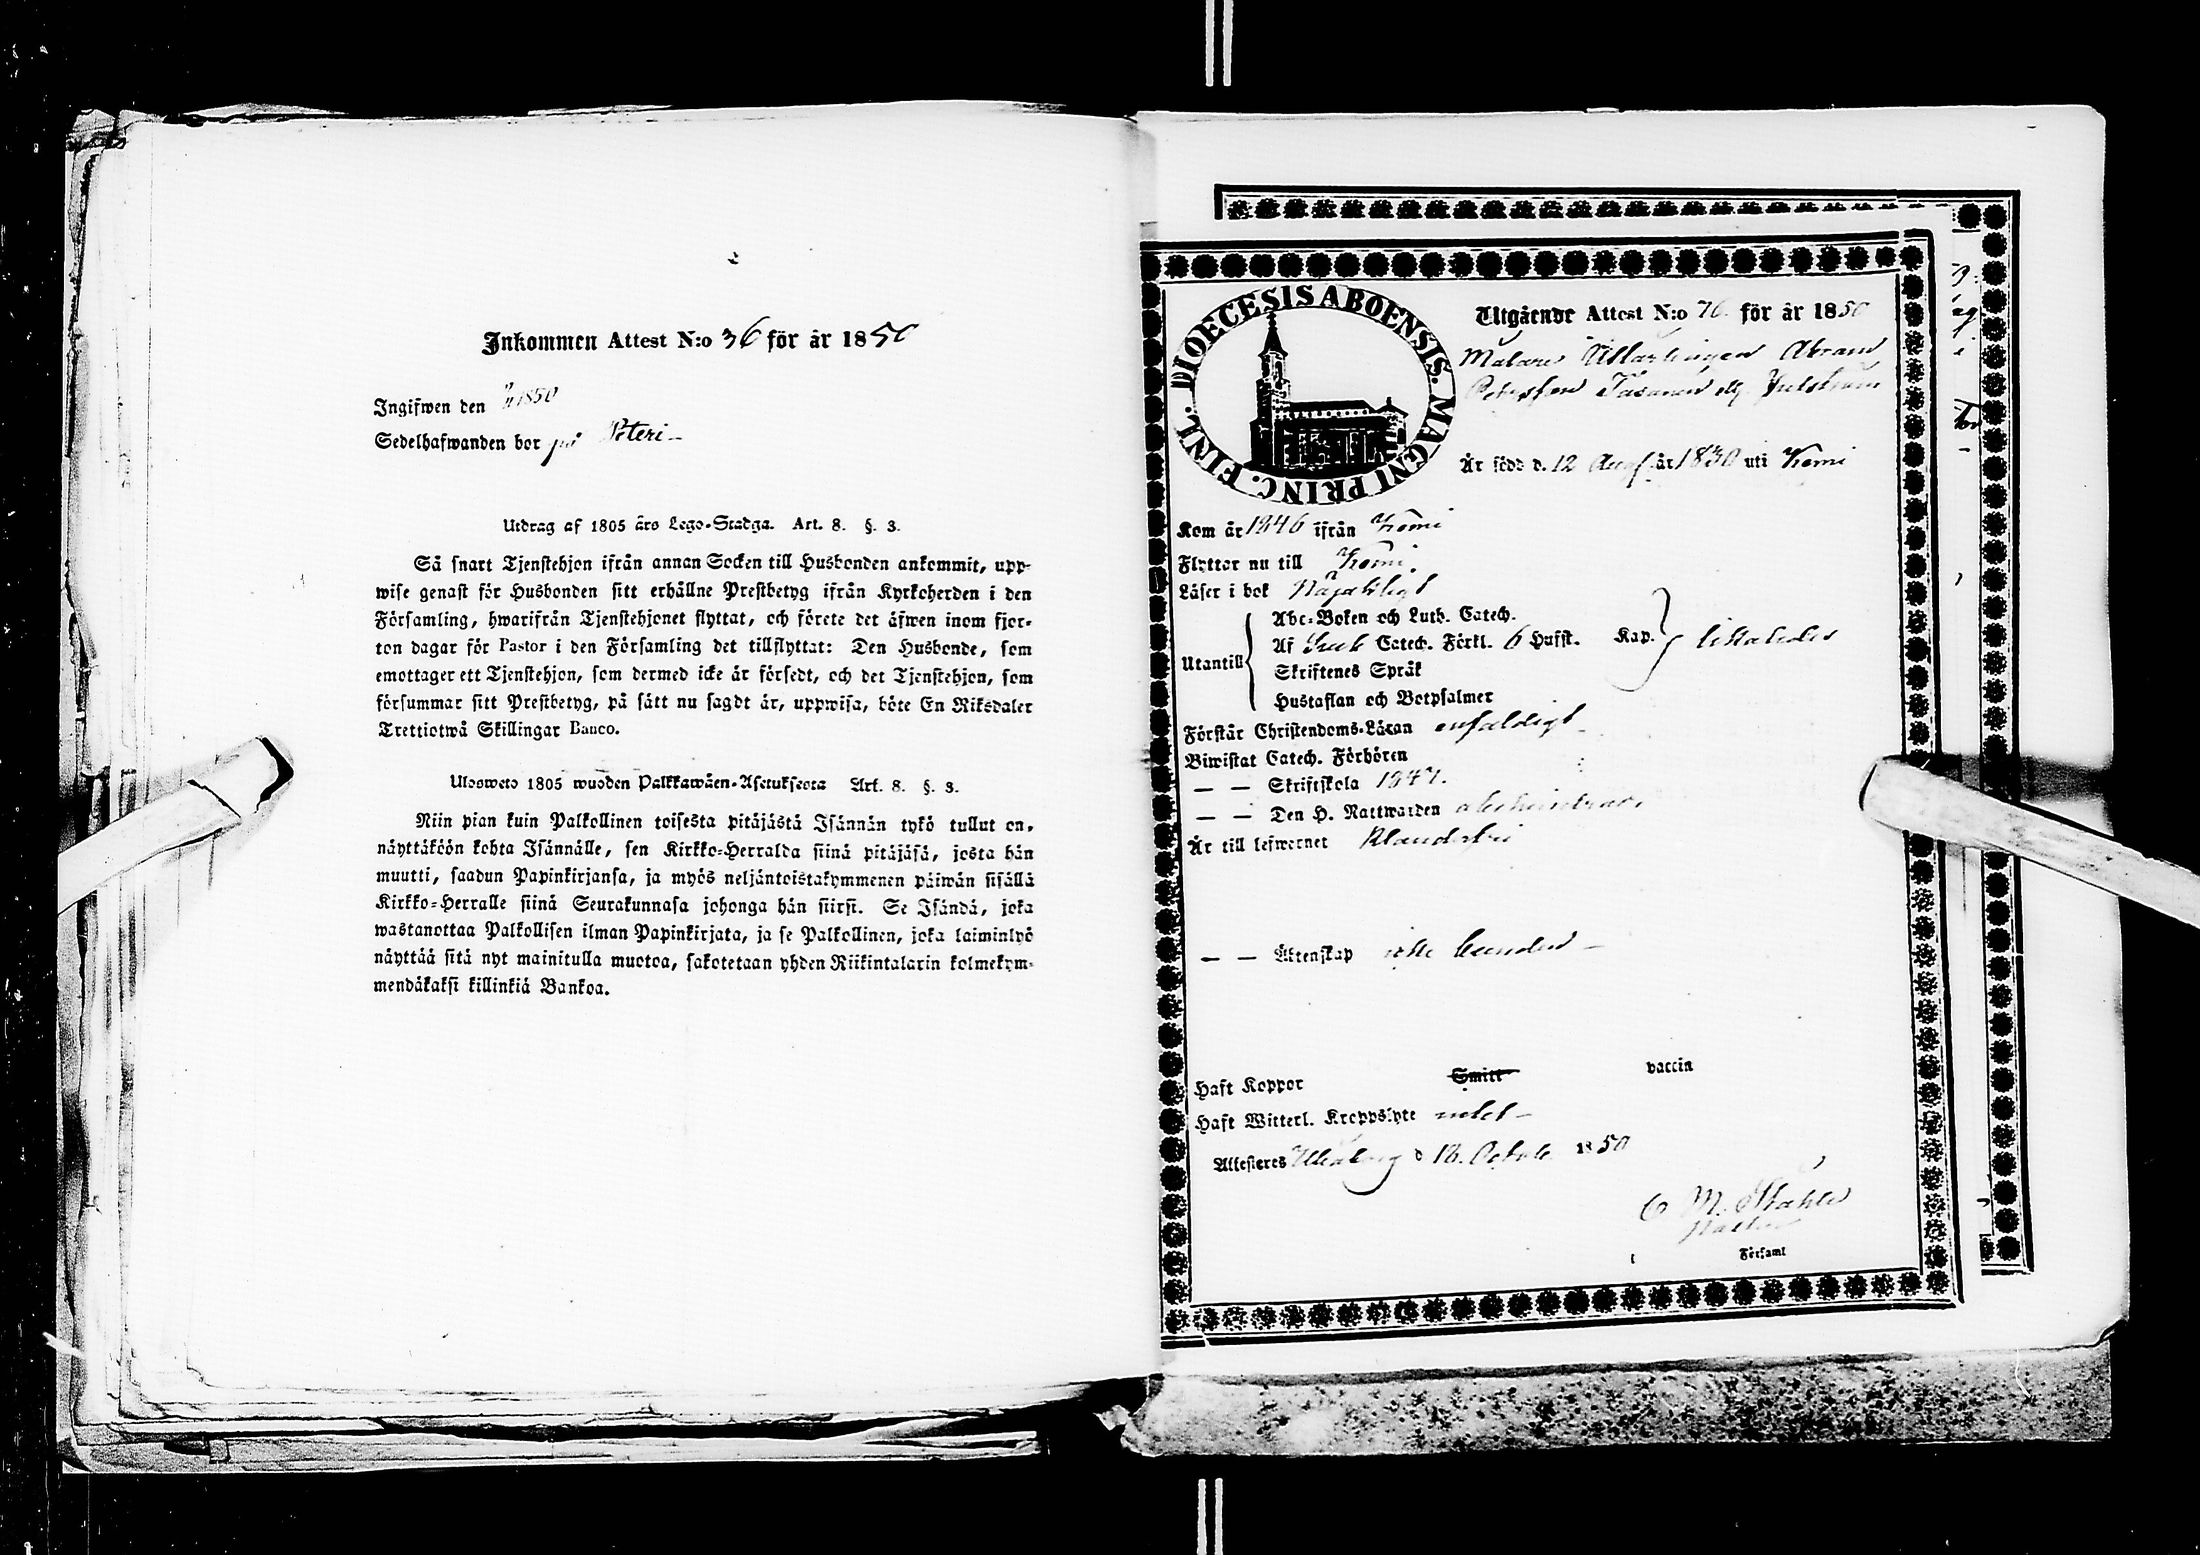 Inkommen Attest N:o 36 för år 1850
Ingifwen den 1850
Sedelhafwanden bor på Peteri
Utdrag af 1805 års Lego-Stadga. Art. 8. §. 3.
Så snart Tjenstehjon ifrån annan Socken till Husbonden ankommit, upp-
wise genast för Husbonden sitt erhållne Prestbetyg ifrån Kyrkoherden i den
Församling, hwarifrån Tjenstehjonet flyttat, och förete det äfwen inom fjor-
ton dagar för Pastor i den Församling det tillflyttat: Den Husbonde, som
emottager ett Tjenstehjon, som dermed icke är försedt, och det Tjenstehjon, som
försummar sitt Prestbetyg, på sätt nu sagdt är, uppwisa, böte En Riksdaler
Trettiotwå Skillingar Banco.
Ulosweto 1805 wuoden Palkkawäen-Asetuksesta Art. 8. §. 3.
Niin pian kuin Palkollinen toisesta pitäjästä Isännän tykö tullut on,
näyttäköön kohta Isännälle, sen Kirkko-Herralda siinä pitäjäsä, josta hän
muutti, saadun Papinkirjansa, ja myös neljäntoistakymmenen päiwän sisällä
Kirkko-Herralle siinä Seurakunnasa johonga hän siirsi. Se Isändä, joka
wastanottaa Palkollisen ilman Papinkirjata, ja se Palkollinen, joka laiminlyö
näyttää sitä nyt mainitulla muotoa, sakotetaan yhden Riikintalarin kolmekym-
mendäkaksi killinkiä Bankoa.
DIOECESIS ABOENSIS. MAGNI PRINC. FINL.
Utgående Attest N:o 76 för år 1850
Målare Abram
Petersson
Är född d. 12 Aug. år 1830 uti Kemi
Kom år 1846 ifrån Kemi
Flyttar nu till Kemi.
Läser i bok Nöjaktligt
Utantill
Abc-Boken och Luth. Catech.
Af Catech. Förkl. 6 Hufst. Kap.
Skriftenes Språk
Hustaflan och Botpsalmer
Förstår Christendoms-Läran enfaldigt
Biwistat Catech. Förhören
— — Skriftskola 1847.
— — Den H. Nattwarden
Är till lefwernet Klanderfri
— — Äktenskap icke bunden
Haft Koppor Smitt vaccin
Haft Witterl. Kroppslyte intet
Attesteras Uleåborg d 16. Octob. 1850
C M. Stahle
Församl